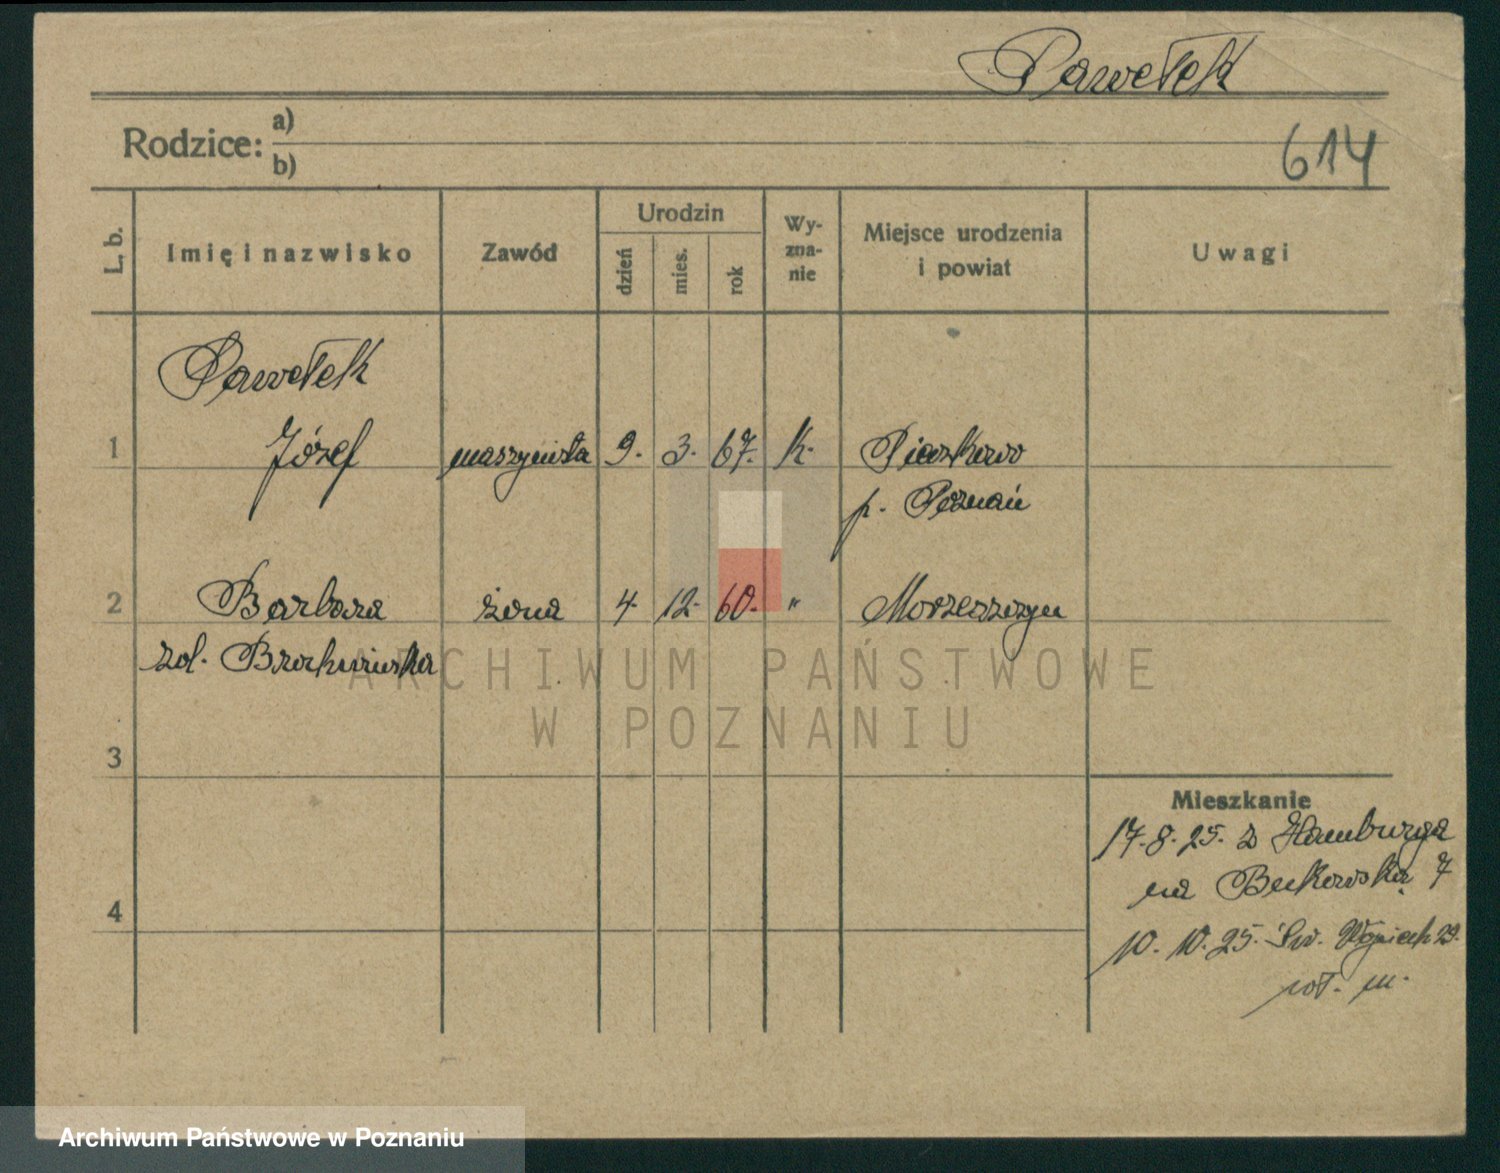 Pawełek
Rodzice: a)
b)
614
L. b.
Imię i nazwisko
Zawód
Urodzin
dzień
mies.
rok
Wy-
zna-
nie
Miejsce urodzenia
i powiat
Uwagi
Pawełek
1 Józef maszynista 9. 3. 67. k.
p. Poznań
2 Barbara żona 4. 12. 60. "
ARCHIWUM PAŃSTWOWE
W POZNANIU
3
Mieszkanie
17. 8. 25. z Hamburga
na Bukowską 7
4
10. 10. 25. Św. Wojciech 29.
Archiwum Państwowe w Poznaniu